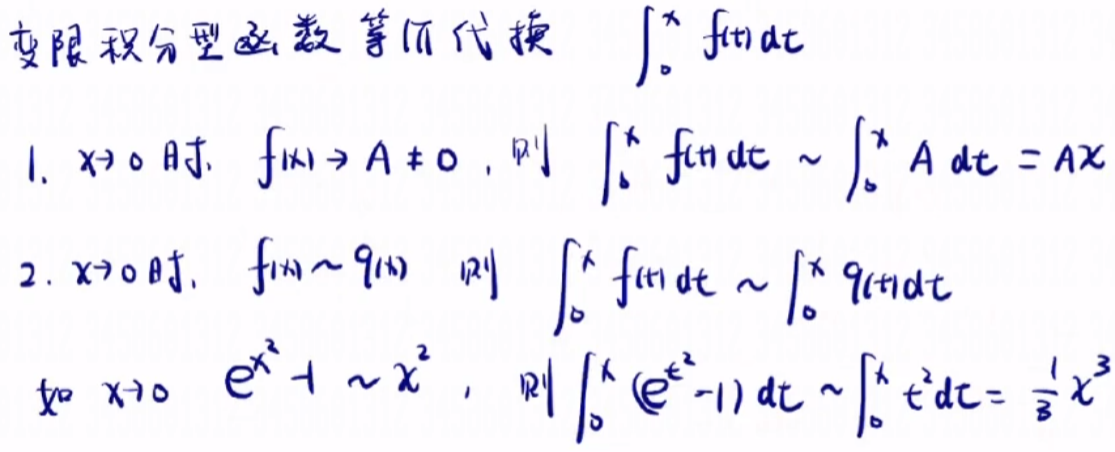 变限积分型函数等价代换 ∫₀ˣ f(t) dt
1. x→0 时, f(x) → A ≠ 0, 则 ∫₀ˣ f(t) dt ~ ∫₀ˣ A dt = Ax
2. x→0 时, f(x) ~ g(x) 则 ∫₀ˣ f(t) dt ~ ∫₀ˣ g(t) dt
如 x→0 e^{x²} -1 ~ x², 则 ∫₀ˣ (e^{t²} -1) dt ~ ∫₀ˣ t² dt = 1/3 x³